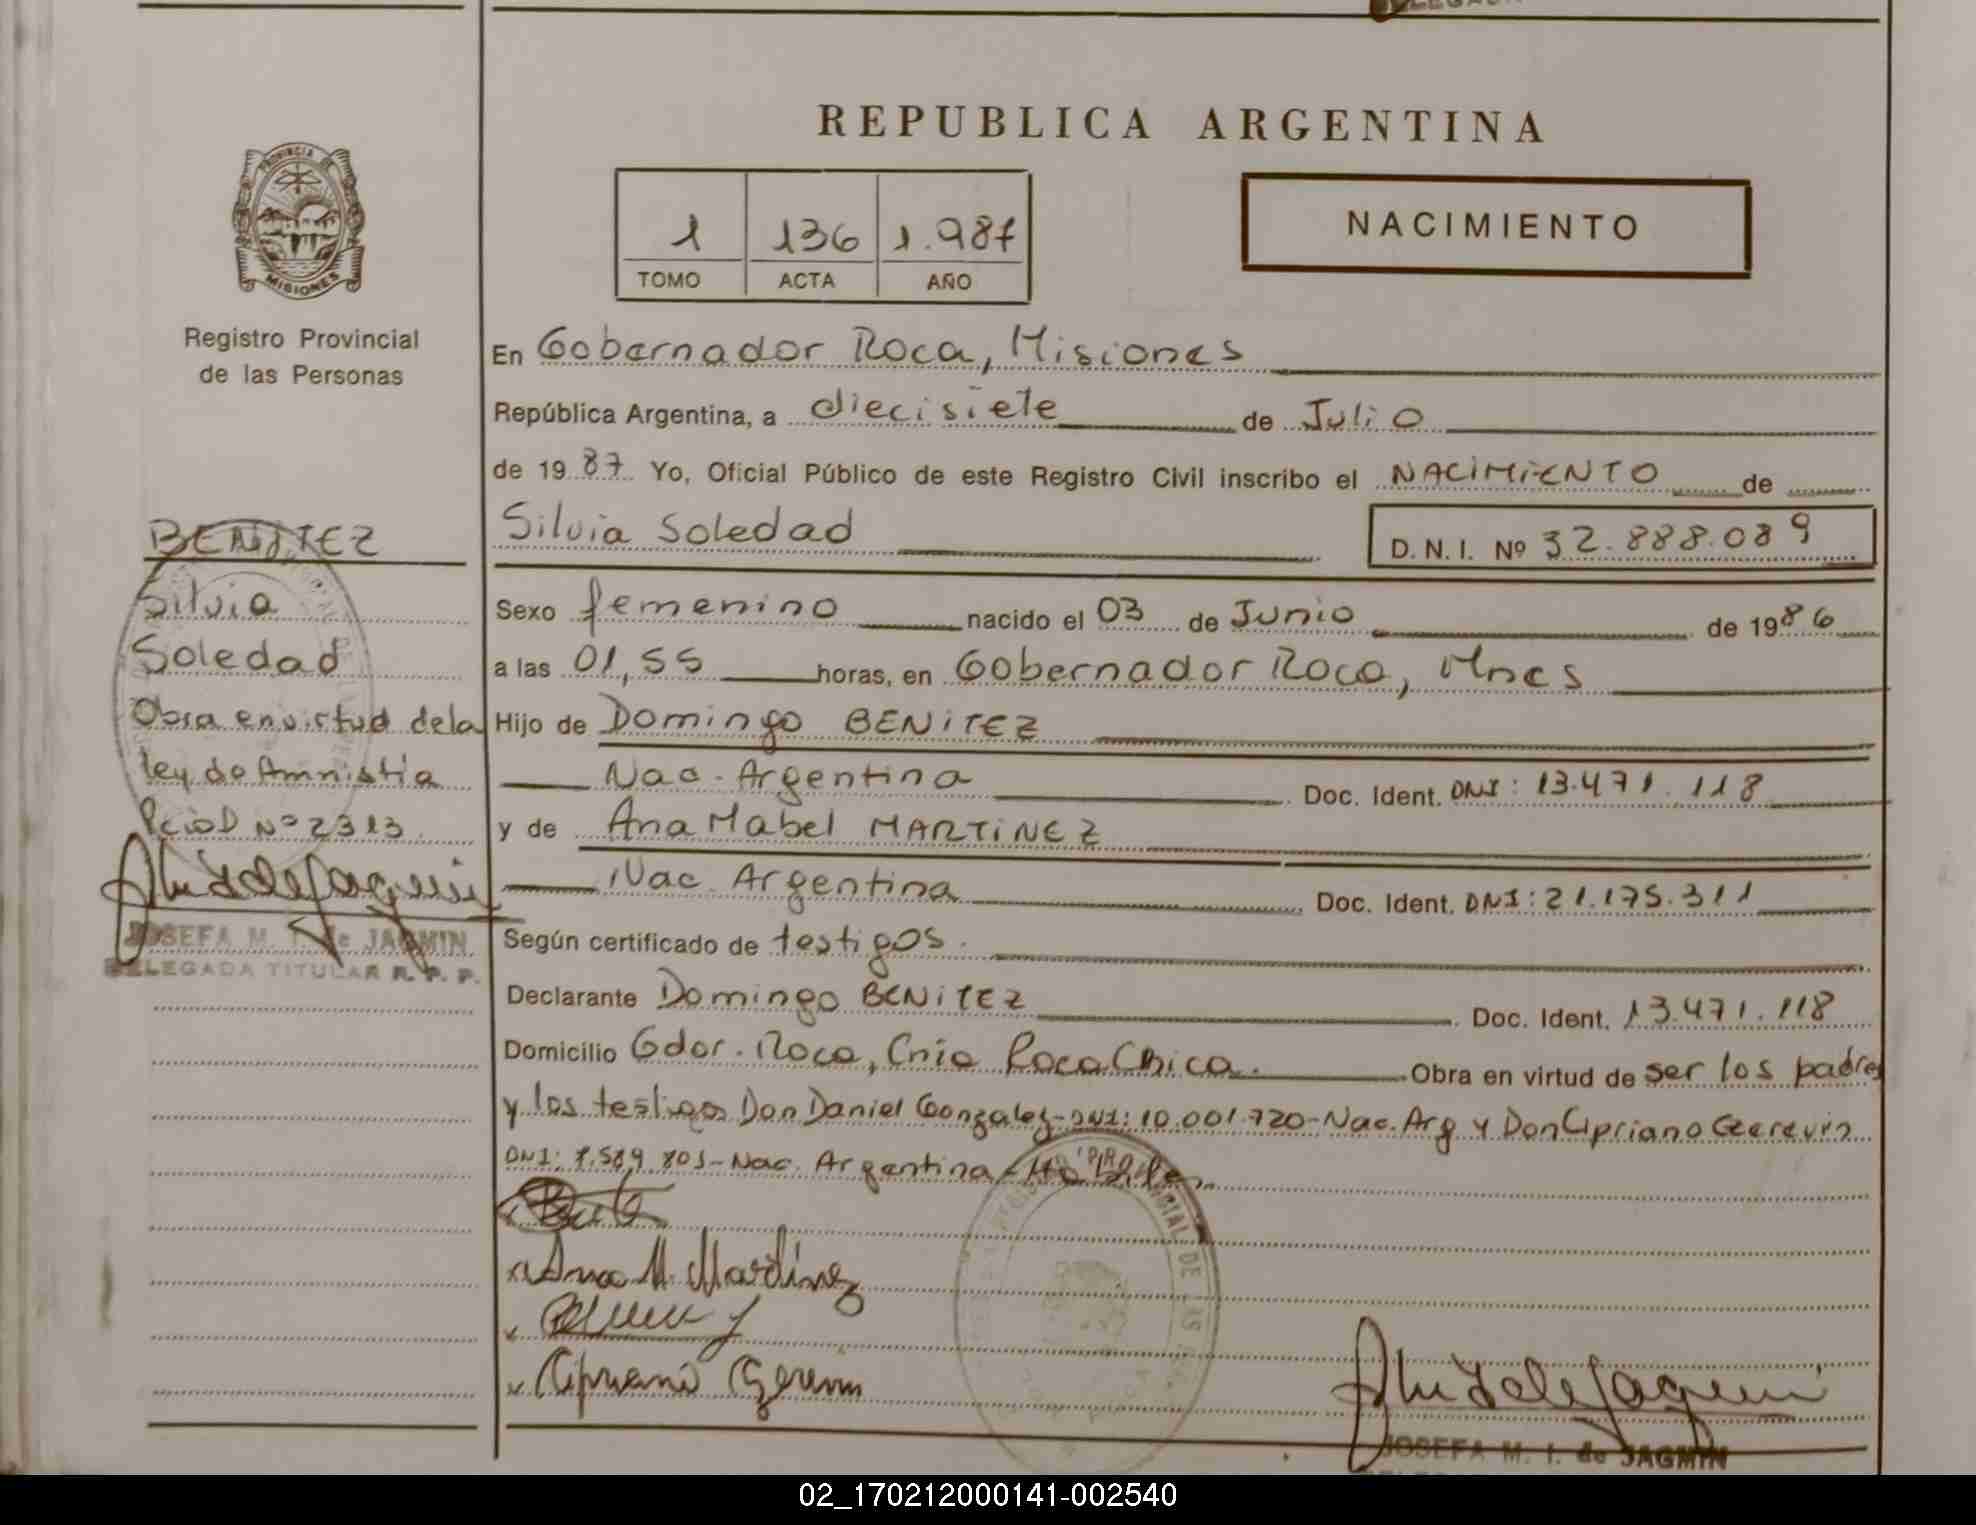 REPUBLICA ARGENTINA
PROVINCIA DE
MISIONES
Registro Provincial
de las Personas
1 136 1.987
TOMO ACTA AÑO
NACIMIENTO
En Gobernador Roca, Misiones
República Argentina, a diecisiete de Julio
de 1987 Yo, Oficial Público de este Registro Civil inscribo el NACIMIENTO de
Silvia Soledad D.N.I. Nº 32.888.089
Sexo femenino nacido el 03 de Junio de 1986
a las 01,55 horas, en Gobernador Roca, Mnes
Hijo de Domingo BENITEZ
Nac. Argentina Doc. Ident. DNI: 13.471.118
y de Ana Mabel MARTINEZ
Nac. Argentina Doc. Ident. DNI: 21.175.311
Según certificado de testigos.
Declarante Domingo BENITEZ Doc. Ident. 13.471.118
Domicilio Gdor. Roca, Cnia Roca Chica. Obra en virtud de ser los padres
y los testigos Don Daniel Gonzalez-DNI: 10.001.720-Nac. Arg y Don Cipriano
DNI: 7.589.801-Nac. Argentina-
Ana M. Martínez
Cipriano
JOSEFA M. I. de JAGMIN
BENITEZ
Silvia
Soledad
Obra en virtud de la
ley de Amnistia
Nº 2313
JOSEFA M. I. de JAGMIN
DELEGADA TITULAR R. P. P.
02_170212000141-002540